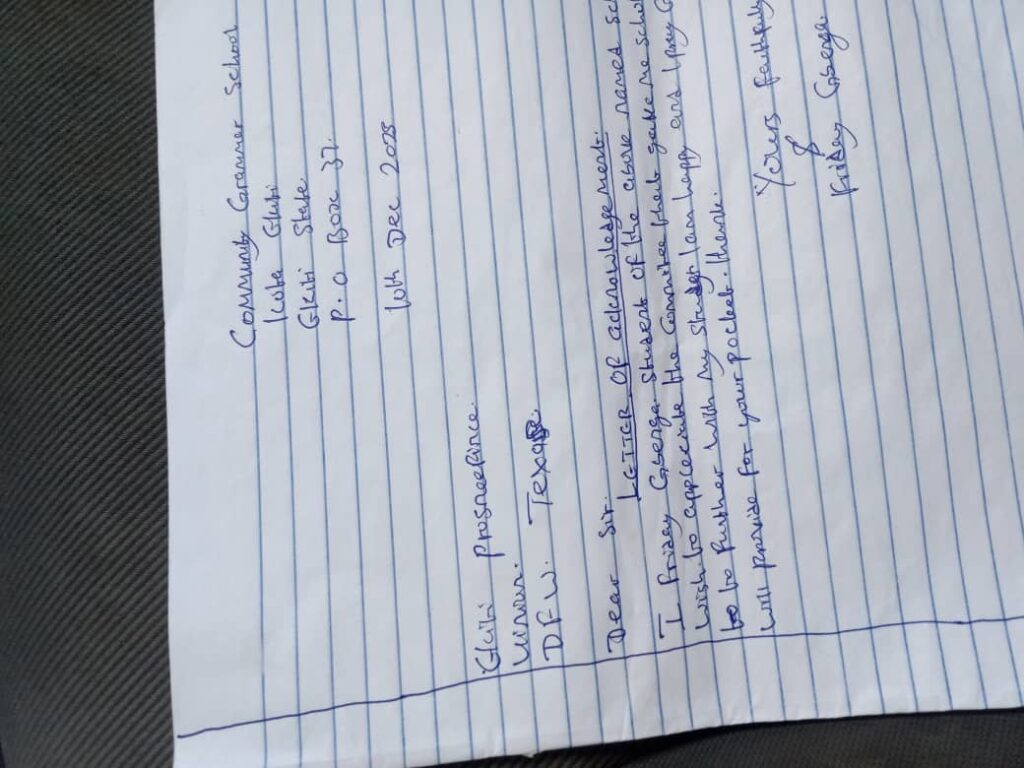 Community Grammer School
Ikote Ekiti
Ekiti State
P.O Box 37.
10th Dec 2025
Ekiti
Union.
DFW. Texas.
Dear Sir.
LETTER OF acknowledgement.
I Friday Gbenga student of the above named Sc
wish to appreciate the committee that gave me schol
to further with my study I am happy and I pray G
will provide for your pocket. thank.
Yours faithfully
Friday Gbenga